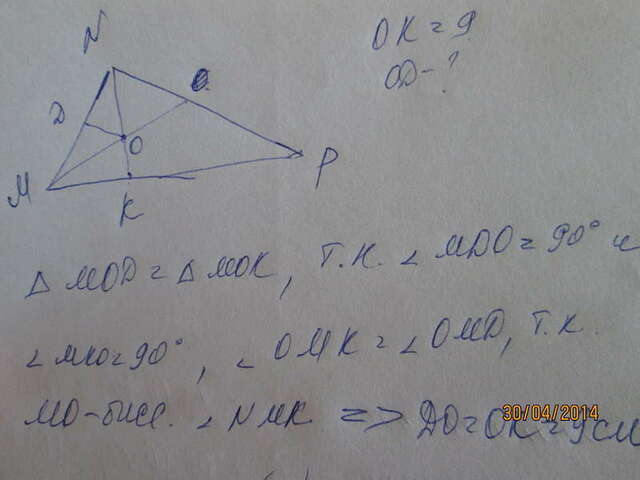 OK = 9
OD - ?
N
D
O
M
K
P
△ MOD = △ MOK, т.к. ∠ MDO = 90° и
∠ МКО = 90°, ∠ OMK = ∠ OMD, т.к.
МО - бисс. ∠ NMK. => DO = OK = 9 см
30/04/2014